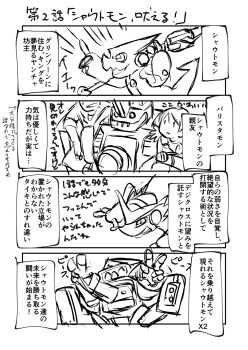 第2話「シャウトモン、吠える！」
シャウトモン
グリンゾーンに
住むキングを
夢見るヤンチャ
坊主
バリスタモン
シャウトモンの
親友
気は優しくて
力持ち、実は…
自らの弱さを自覚し、
絶望的な状況を
打開する術として
デジクロスに望みを
託すシャウトモンと
シャウトモンの
置かれた立場が
わからない
タイキとのすれ違い
それを乗り越えて
現れるシャウトモン
X2
シャウトモン達の
未来を勝ち取る
闘いが始まる！